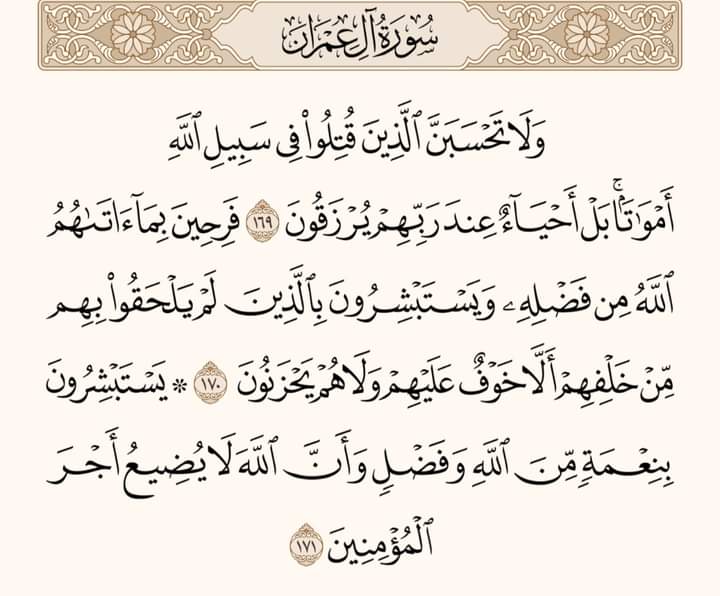 سُورَةُ آلِ عِمْرَانَ
وَلَا تَحْسَبَنَّ ٱلَّذِينَ قُتِلُوا۟ فِى سَبِيلِ ٱللَّهِ
أَمْوَٰتًۢا ۚ بَلْ أَحْيَآءٌ عِندَ رَبِّهِمْ يُرْزَقُونَ ١٦٩ فَرِحِينَ بِمَآ ءَاتَىٰهُمُ
ٱللَّهُ مِن فَضْلِهِۦ وَيَسْتَبْشِرُونَ بِٱلَّذِينَ لَمْ يَلْحَقُوا۟ بِهِم
مِّنْ خَلْفِهِمْ أَلَّا خَوْفٌ عَلَيْهِمْ وَلَا هُمْ يَحْزَنُونَ ١٧٠ * يَسْتَبْشِرُونَ
بِنِعْمَةٍ مِّنَ ٱللَّهِ وَفَضْلٍ وَأَنَّ ٱللَّهَ لَا يُضِيعُ أَجْرَ
ٱلْمُؤْمِنِينَ ١٧١